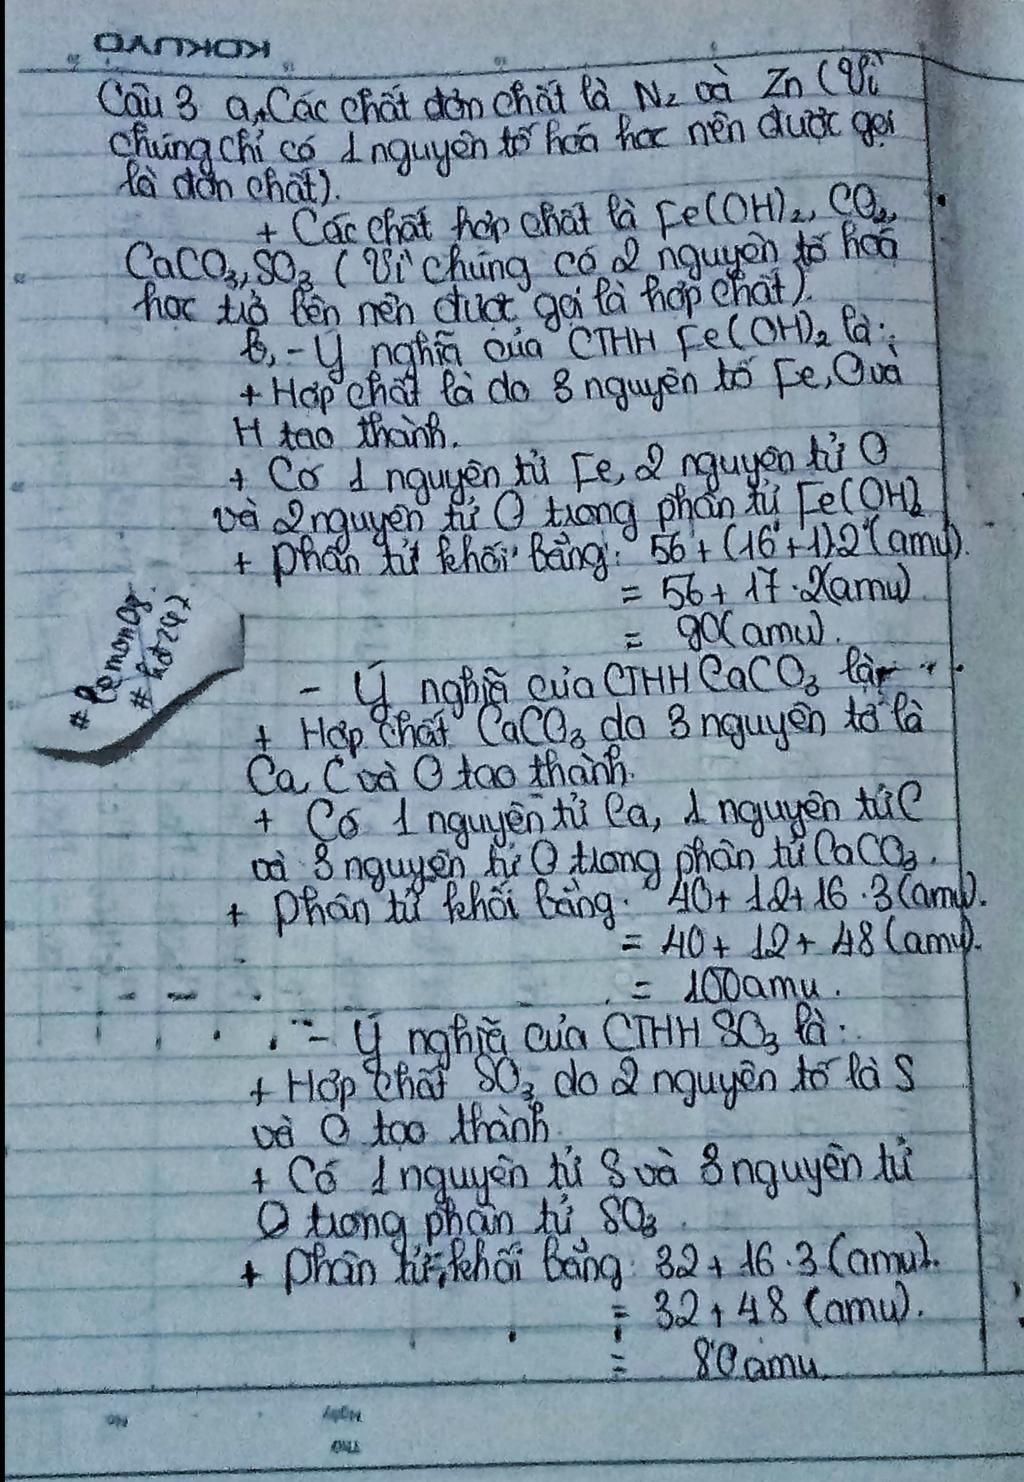 KOKUYO
Câu 3 a, Các chất đơn chất là N2 và Zn (Vì
chúng chỉ có 1 nguyên tố hoá học nên được gọi
là đơn chất).
+ Các chất hợp chất là Fe(OH)2, CO2,
CaCO3, SO3 (Vì chúng có 2 nguyên tố hoá
học trở lên nên được gọi là hợp chất).
b, - Ý nghĩa của CTHH Fe(OH)2 là:
+ Hợp chất là do 3 nguyên tố Fe, O và
H tạo thành.
+ Có 1 nguyên tử Fe, 2 nguyên tử O
và 2 nguyên tử O trong phân tử Fe(OH)2
+ Phân tử khối bằng: 56 + (16 + 1).2 (amu).
= 56 + 17 . 2(amu)
= 90(amu).
# lemonOg.
# hdt242
- Ý nghĩa của CTHH CaCO3 là
+ Hợp chất CaCO3 do 3 nguyên tố là
Ca, C và O tạo thành.
+ Có 1 nguyên tử Ca, 1 nguyên tử C
và 3 nguyên tử O trong phân tử CaCO3.
+ Phân tử khối bằng: 40 + 12 + 16 . 3 (amu).
= 40 + 12 + 48 (amu).
= 100amu.
- Ý nghĩa của CTHH SO3 là:
+ Hợp chất SO3 do 2 nguyên tố là S
và O tạo thành.
+ Có 1 nguyên tử S và 3 nguyên tử
O trong phân tử SO3.
+ Phân tử khối bằng: 32 + 16 . 3 (amu).
= 32 + 48 (amu).
= 80amu.
No
Ngày
Thứ